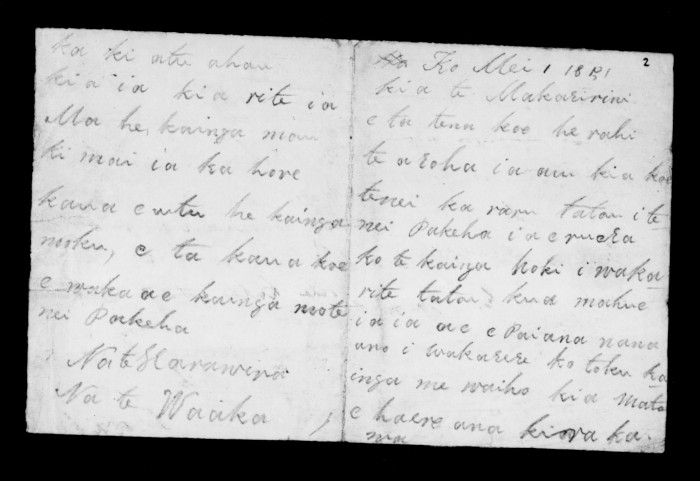 2
Ko Mei 1 1851
kia te Makaririni
e ta tena koe he rahi
te aroha ia au kia koe
tenei ka raru tatou i te
nei Pakeha ia eruera
ko te kainga hoki i waka
rite tatou kua mahue
ia ia ae e Paiana nana
ano i wakarere ko toku ka
inga me waiho kia mato
e haere ana kiora ka.
ma
ka ki atu ahau
kia ia kia rite ia
Ma he kainga mau
ki mai ia ka hore
kaua e utu he kainga
nooku, e ta kaua koe
e waka ae kainga mote
nei Pakeha
Na te Harawira
Na te Waaka